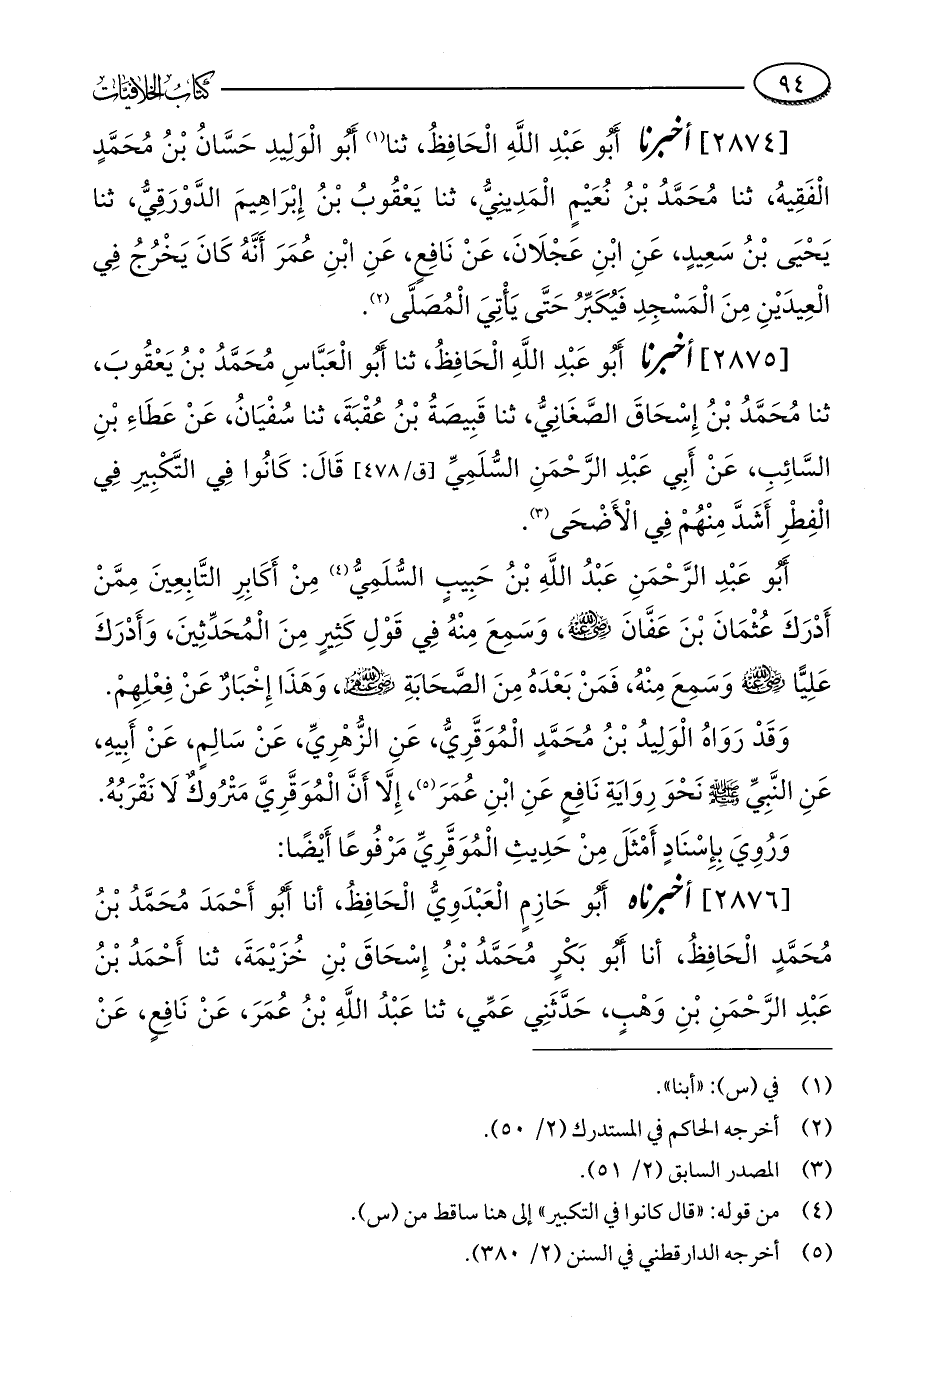 ٩٤ كتاب الخلافيات
[٢٨٧٤] أخبرنا أَبُو عَبْدِ اللَّهِ الْحَافِظُ، ثنا(١) أَبُو الْوَلِيدِ حَسَّانُ بْنُ مُحَمَّدٍ
الْفَقِيهُ، ثنا مُحَمَّدُ بْنُ نُعَيْمٍ الْمَدِينِيُّ، ثنا يَعْقُوبُ بْنُ إِبْرَاهِيمَ الدَّوْرَقِيُّ، ثنا
يَحْيَى بْنُ سَعِيدٍ، عَنِ ابْنِ عَجْلَانَ، عَنْ نَافِعٍ، عَنِ ابْنِ عُمَرَ أَنَّهُ كَانَ يَخْرُجُ فِي
الْعِيدَيْنِ مِنَ الْمَسْجِدِ فَيُكَبِّرُ حَتَّى يَأْتِيَ الْمُصَلَّى(٢).
[٢٨٧٥] أخبرنا أَبُو عَبْدِ اللَّهِ الْحَافِظُ، ثنا أَبُو الْعَبَّاسِ مُحَمَّدُ بْنُ يَعْقُوبَ،
ثنا مُحَمَّدُ بْنُ إِسْحَاقَ الصَّغَانِيُّ، ثنا قَبِيصَةُ بْنُ عُقْبَةَ، ثنا سُفْيَانُ، عَنْ عَطَاءِ بْنِ
السَّائِبِ، عَنْ أَبِي عَبْدِ الرَّحْمَنِ السُّلَمِيِّ [ق/٤٧٨] قَالَ: كَانُوا فِي التَّكْبِيرِ فِي
الْفِطْرِ أَشَدَّ مِنْهُمْ فِي الْأَضْحَى(٣).
أَبُو عَبْدِ الرَّحْمَنِ عَبْدُ اللَّهِ بْنُ حَبِيبٍ السُّلَمِيُّ(٤) مِنْ أَكَابِرِ التَّابِعِينَ مِمَّنْ
أَدْرَكَ عُثْمَانَ بْنَ عَفَّانَ رضي الله عنه، وَسَمِعَ مِنْهُ فِي قَوْلِ كَثِيرٍ مِنَ الْمُحَدِّثِينَ، وَأَدْرَكَ
عَلِيًّا رضي الله عنه وَسَمِعَ مِنْهُ، فَمَنْ بَعْدَهُ مِنَ الصَّحَابَةِ رضي الله عنهم، وَهَذَا إِخْبَارٌ عَنْ فِعْلِهِمْ.
وَقَدْ رَوَاهُ الْوَلِيدُ بْنُ مُحَمَّدٍ الْمُوَقَّرِيُّ، عَنِ الزُّهْرِيِّ، عَنْ سَالِمٍ، عَنْ أَبِيهِ،
عَنِ النَّبِيِّ ﷺ نَحْوَ رِوَايَةِ نَافِعٍ عَنِ ابْنِ عُمَرَ(٥)، إِلَّا أَنَّ الْمُوَقَّرِيَّ مَتْرُوكٌ لَا نَقْرَبُهُ.
وَرُوِيَ بِإِسْنَادٍ أَمْثَلَ مِنْ حَدِيثِ الْمُوَقَّرِيِّ مَرْفُوعًا أَيْضًا:
[٢٨٧٦] أخبرناه أَبُو حَازِمٍ الْعَبْدَوِيُّ الْحَافِظُ، أنا أَبُو أَحْمَدَ مُحَمَّدُ بْنُ
مُحَمَّدٍ الْحَافِظُ، أنا أَبُو بَكْرٍ مُحَمَّدُ بْنُ إِسْحَاقَ بْنِ خُزَيْمَةَ، ثنا أَحْمَدُ بْنُ
عَبْدِ الرَّحْمَنِ بْنِ وَهْبٍ، حَدَّثَنِي عَمِّي، ثنا عَبْدُ اللَّهِ بْنُ عُمَرَ، عَنْ نَافِعٍ، عَنْ
(١) في (س): «أبنا».
(٢) أخرجه الحاكم في المستدرك (٢/ ٥٠).
(٣) المصدر السابق (٢/ ٥١).
(٤) من قوله: «قال كانوا في التكبير» إلى هنا ساقط من (س).
(٥) أخرجه الدارقطني في السنن (٢/ ٣٨٠).